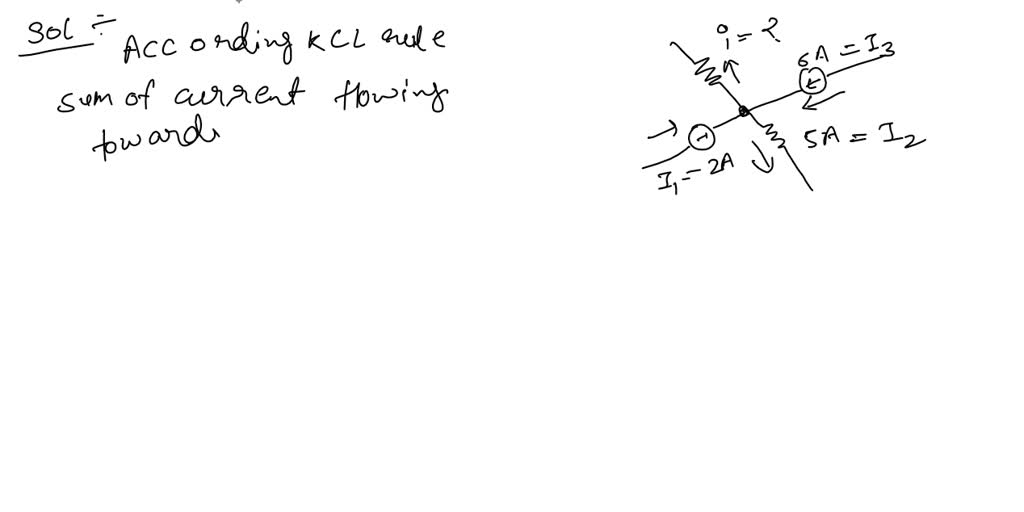 Sol ÷
ACC ording KCL rule
sum of current flowing
toward
i = ?
6A = I3
5A = I2
I1 = 2A